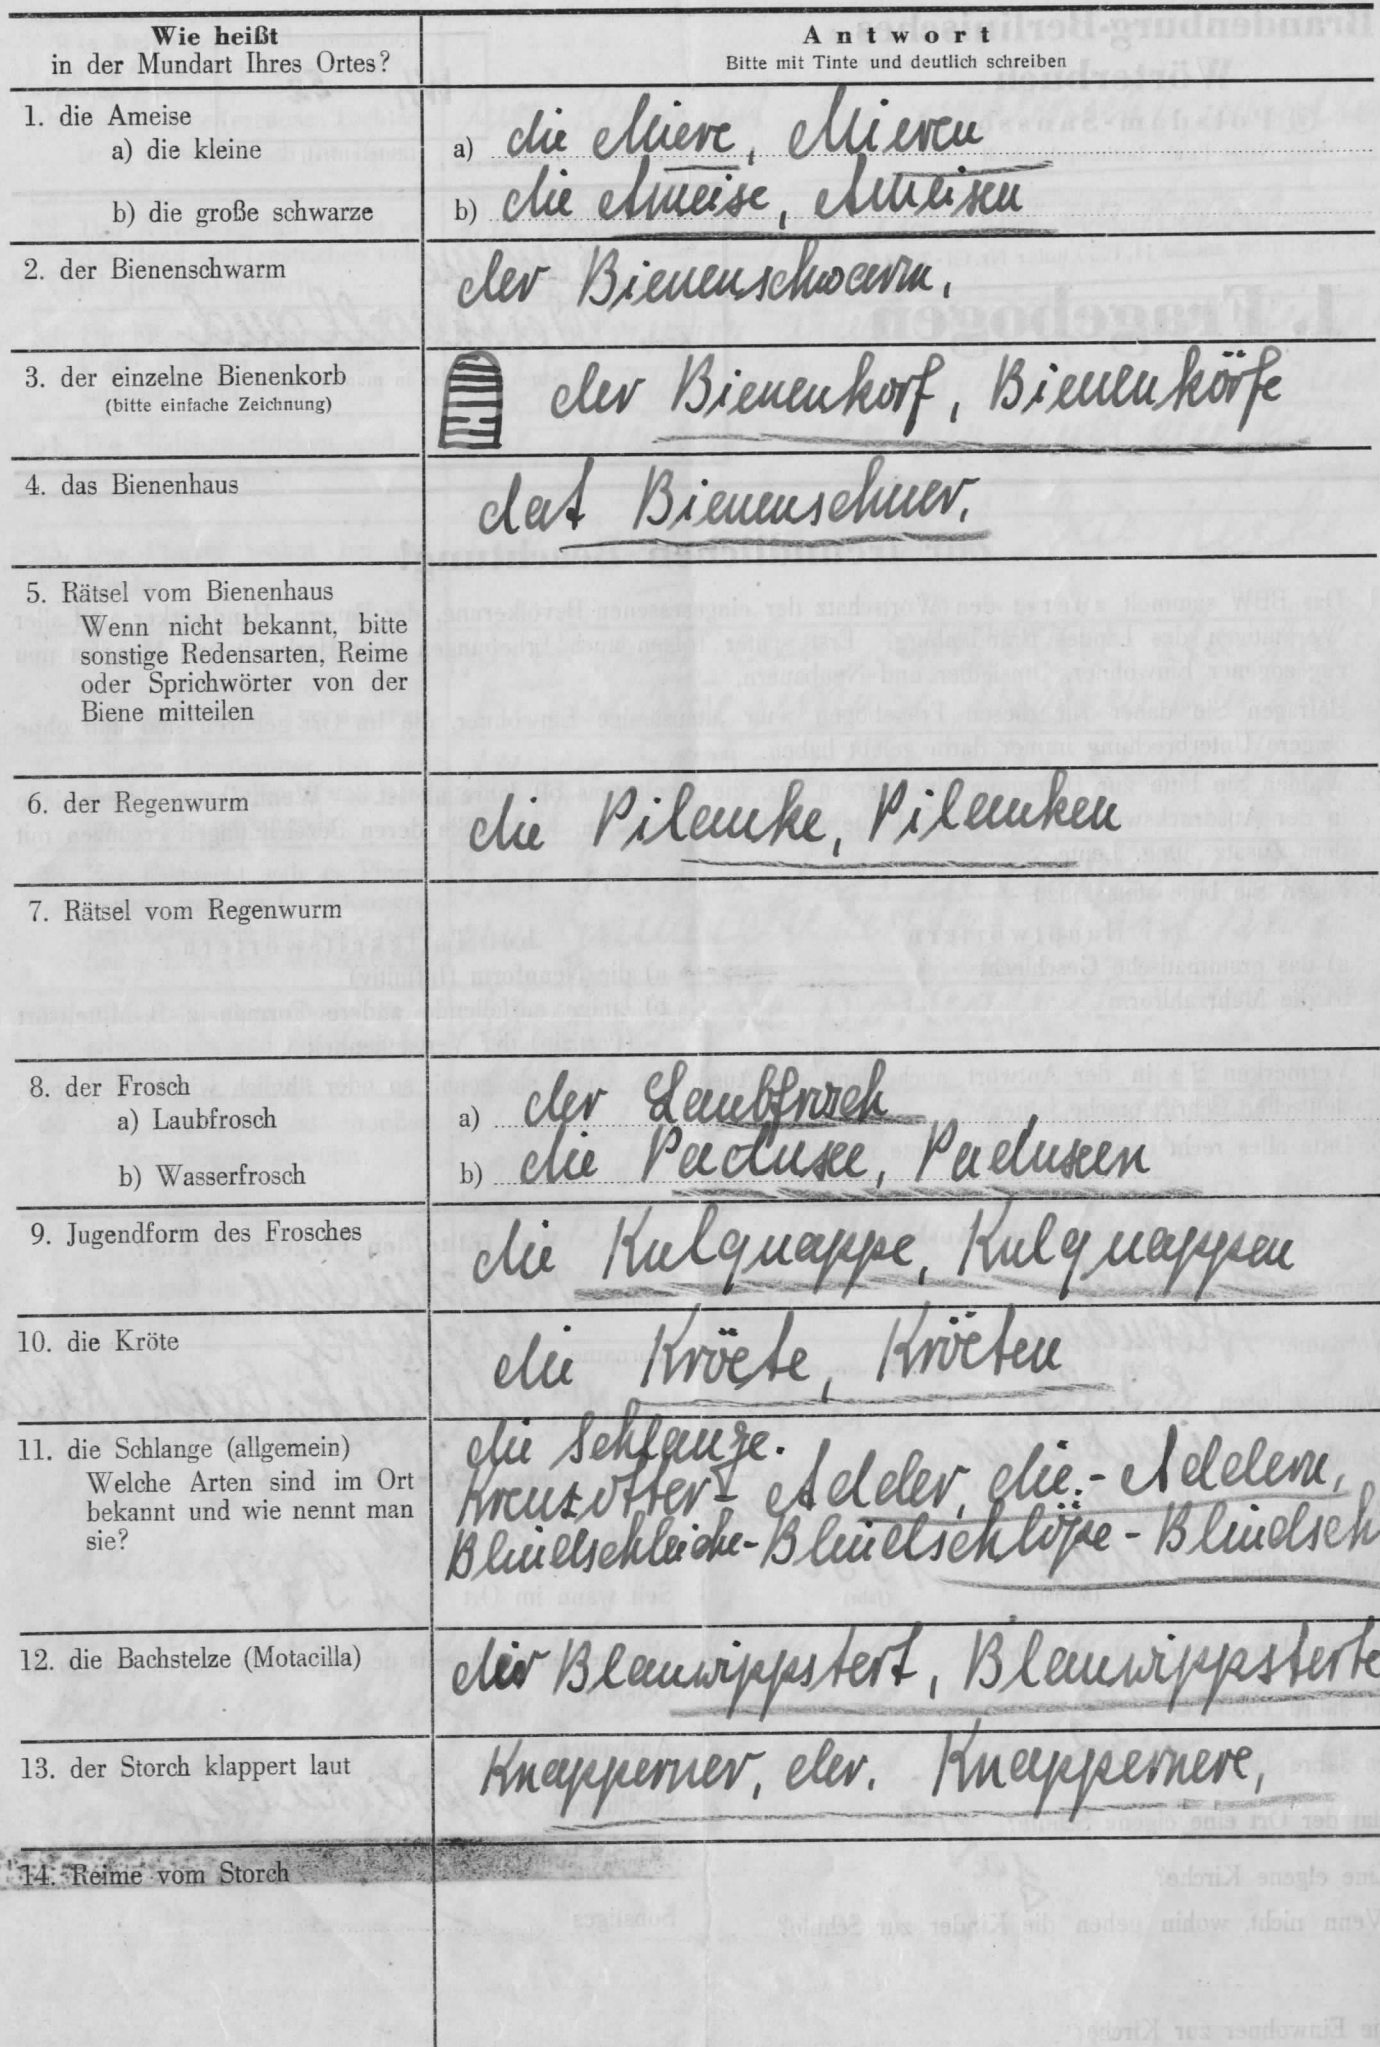 Wie heißt
in der Mundart Ihres Ortes?
Antwort
Bitte mit Tinte und deutlich schreiben
1. die Ameise
a) die kleine
a) die Miere, Mieren
b) die große schwarze
b) die Ameise, Ameisen
2. der Bienenschwarm
der Bienenschwarm,
3. der einzelne Bienenkorb
(bitte einfache Zeichnung)
der Bienenkorf, Bienenkörfe
4. das Bienenhaus
dat Bienenschuer.
5. Rätsel vom Bienenhaus
Wenn nicht bekannt, bitte
sonstige Redensarten, Reime
oder Sprichwörter von der
Biene mitteilen
6. der Regenwurm
die Pilauke, Pilauken
7. Rätsel vom Regenwurm
8. der Frosch
a) Laubfrosch
a) der Laubfrosch
b) Wasserfrosch
b) die
9. Jugendform des Frosches
die Kulquappe, Kulquappen
10. die Kröte
die Kröete, Kröeten
11. die Schlange (allgemein)
Welche Arten sind im Ort
bekannt und wie nennt man
sie?
die Schlange.
Kreuzotter - Adder, die. - Addern,
Blindschleiche - - Blindsch
12. die Bachstelze (Motacilla)
der Blauwippstert, Blauwippsterte
13. der Storch klappert laut
Knapperner, der. Knappernere,
14. Reime vom Storch